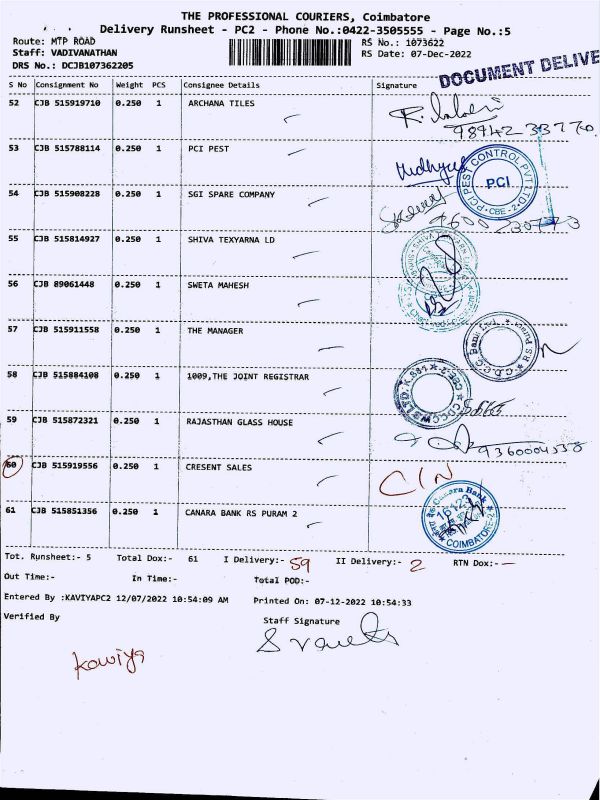 THE PROFESSIONAL COURIERS, Coimbatore
Delivery Runsheet - PC2 - Phone No.:0422-3505555 - Page No.:5
Route: MTP ROAD RS No.: 1073622
Staff: VADIVANATHAN RS Date: 07-Dec-2022
DRS No.: DCJB107362205
DOCUMENT DELIVE
S No Consignment No Weight PCS Consignee Details Signature
52 CJB 515919710 0.250 1 ARCHANA TILES
53 CJB 515788114 0.250 1 PCI PEST
PCI PEST CONTROL PVT LTD
PCI
CBE-2
54 CJB 515908228 0.250 1 SGI SPARE COMPANY
55 CJB 515814927 0.250 1 SHIVA TEXYARNA LD
56 CJB 89061448 0.250 1 SWETA MAHESH
57 CJB 515911558 0.250 1 THE MANAGER
58 CJB 515884108 0.250 1 1009,THE JOINT REGISTRAR
59 CJB 515872321 0.250 1 RAJASTHAN GLASS HOUSE
60 CJB 515919556 0.250 1 CRESENT SALES
CIN
61 CJB 515851356 0.250 1 CANARA BANK RS PURAM 2
Canara Bank
COIMBATORE-2
Tot. Runsheet:- 5 Total Dox:- 61 I Delivery:- 59 II Delivery:- 2 RTN Dox:- -
Out Time:- In Time:- Total POD:-
Entered By :KAVIYAPC2 12/07/2022 10:54:09 AM Printed On: 07-12-2022 10:54:33
Verified By Staff Signature
Kaviya